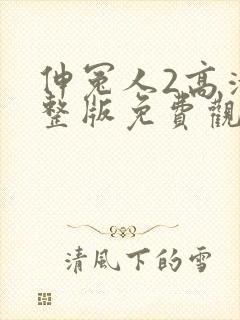 伸冤人2高清
整版免費觀
清風下的雪